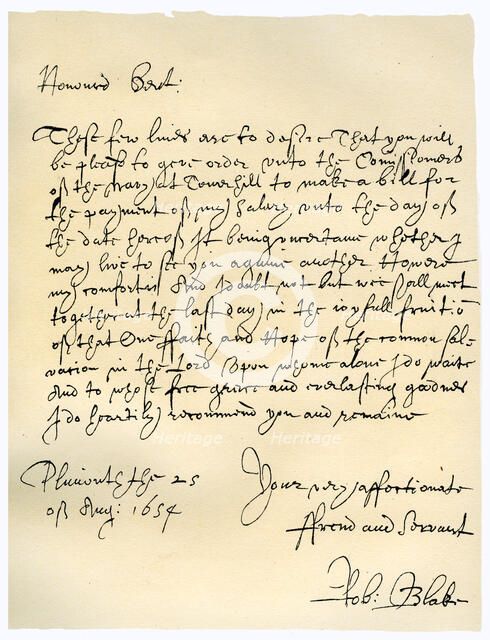 Honourd Gent:
These few lines are to desire That you will
be pleasd to geve order unto the Comissioners
off the Navy at Towerhill to make a bill for
the payment off my Salary unto the day off
the date hereoff It being uncertaine whether I
may live to see you againe another. Howere
my comfort is And I doubt not but wee shall meet
together at the last day in the ioyfull fruitiō
off that One faith and Hope off the common sal-
vation in the Lord Upon whome alone I do waite
And to whose free grace and everlasting goodnes
I do heartily recommend you and remaine
Plimouth the 25
off Aug: 1654
Your very affectionate
ffrend and Servant
Rob: Blake
Heritage
Heritage